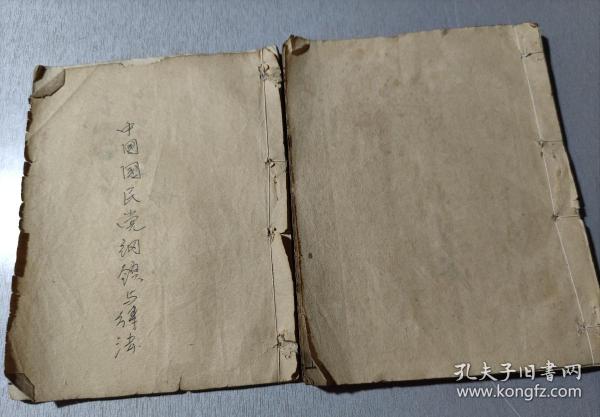 中国国民党纲领与辦法
孔夫子旧书网
www.kongfz.com